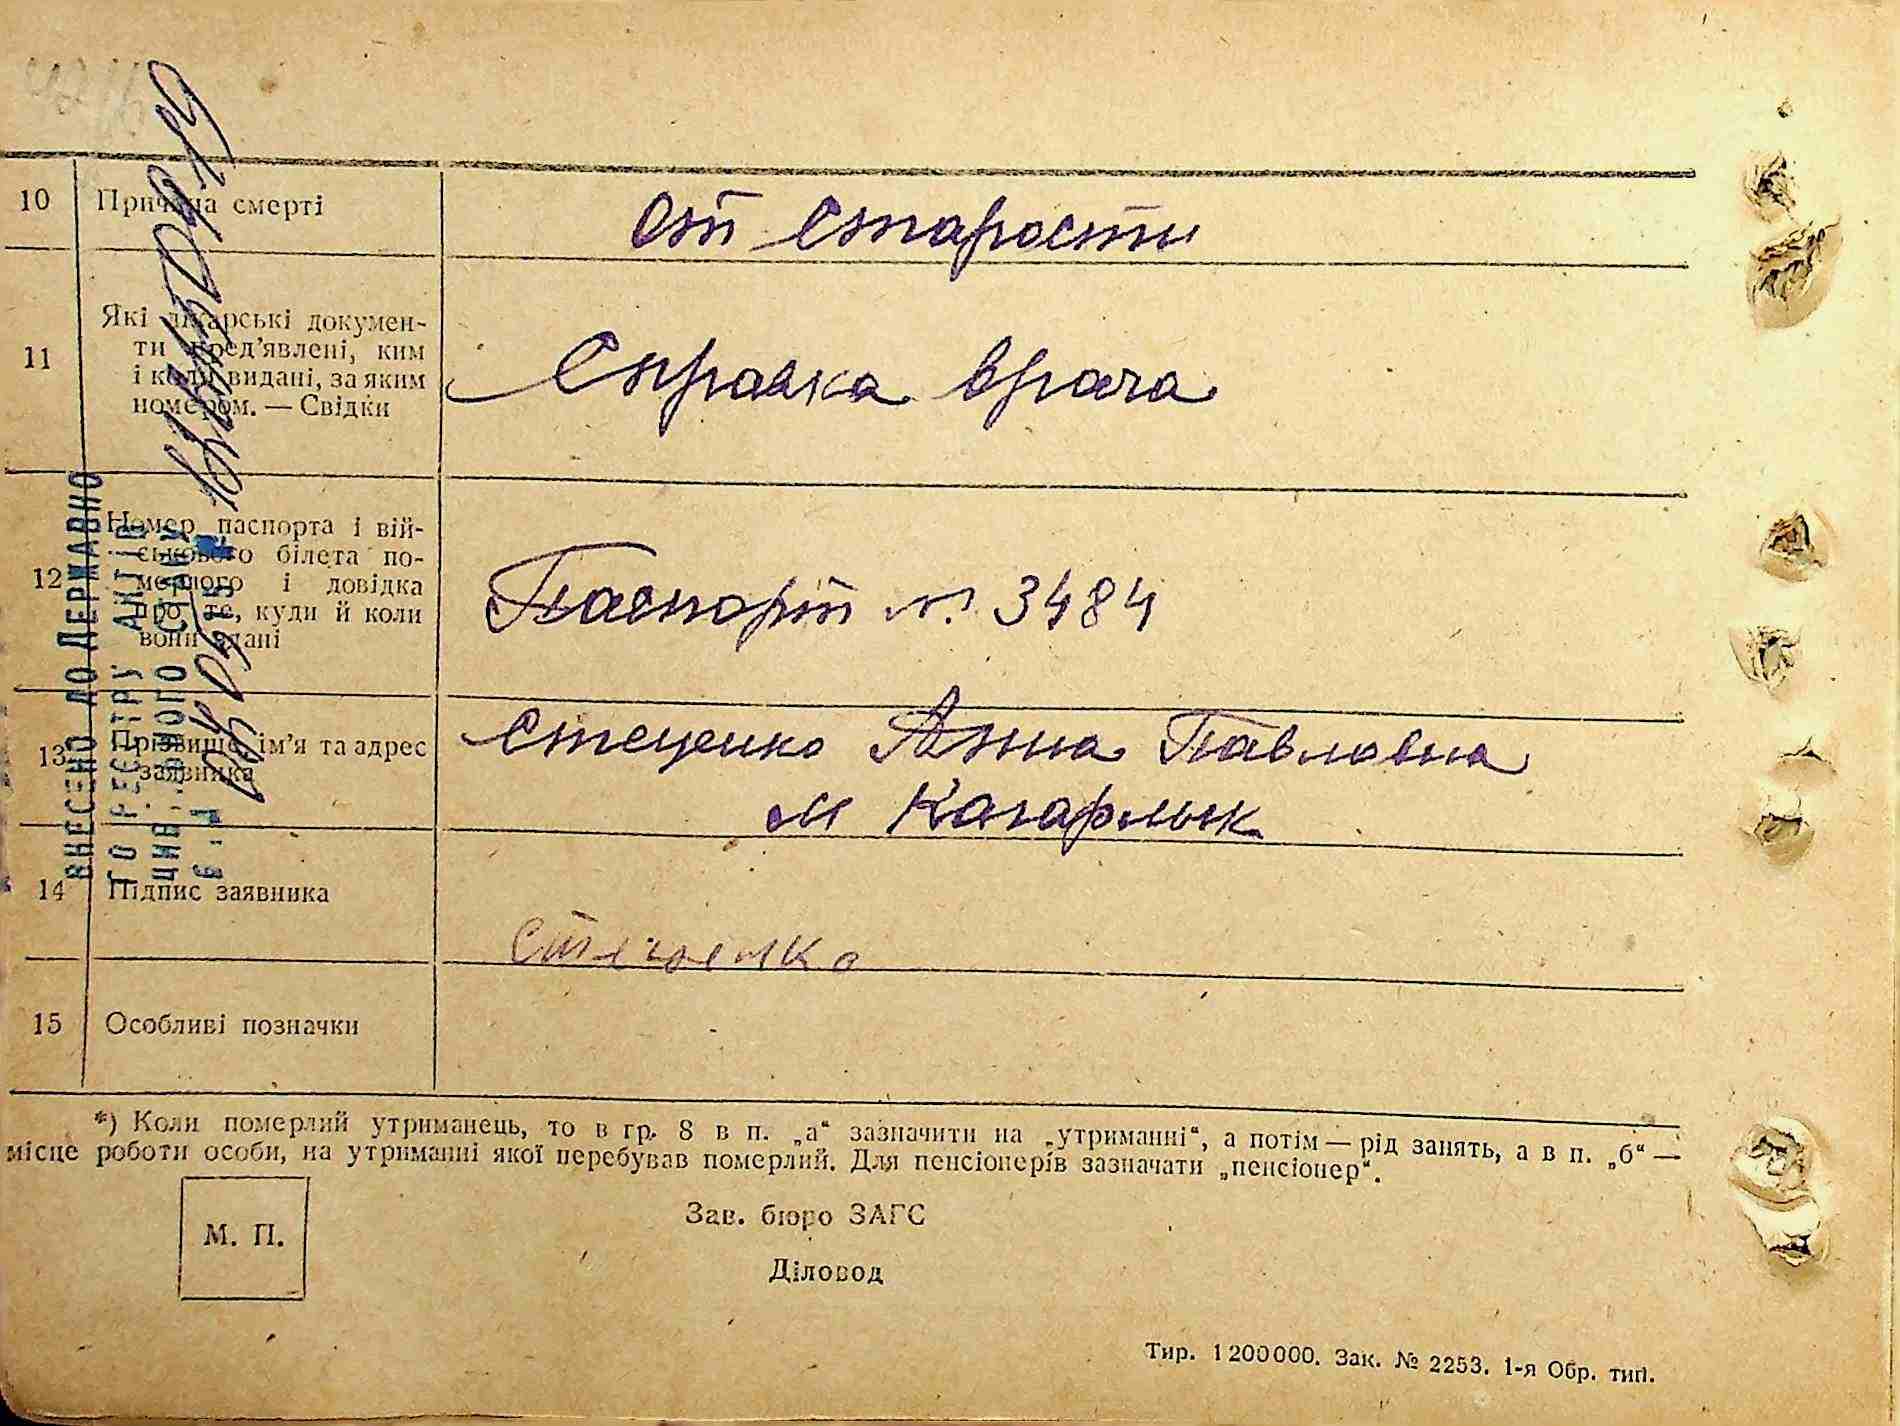 10 Причина смерті От старости
11 Які лікарські докумен-
ти пред'явлені, ким
і коли видані, за яким
номером. — Свідки
Справка врача
12 Номер паспорта і вій-
ськового білета по-
мерлого і довідка
про те, куди й коли
вони здані
Паспорт № 3484
13 Прізвище, ім'я та адрес
заявника
Стеценко Анна Павловна
м Кагарлык
14 Підпис заявника
Стеценко
15 Особливі позначки
*) Коли померлий утриманець, то в гр. 8 в п. „а“ зазначити на „утриманні“, а потім — рід занять, а в п. „б“ —
місце роботи особи, на утриманні якої перебував померлий. Для пенсіонерів зазначати „пенсіонер“.
М. П.
Зав. бюро ЗАГС
Діловод
Тир. 1200000. Зак. № 2253. 1-я Обр. тип.
ВНЕСЕНО ДО ДЕРЖАВНО
ГО РЕЄСТРУ АКТІВ
ЦИВІЛЬНОГО СТАНУ